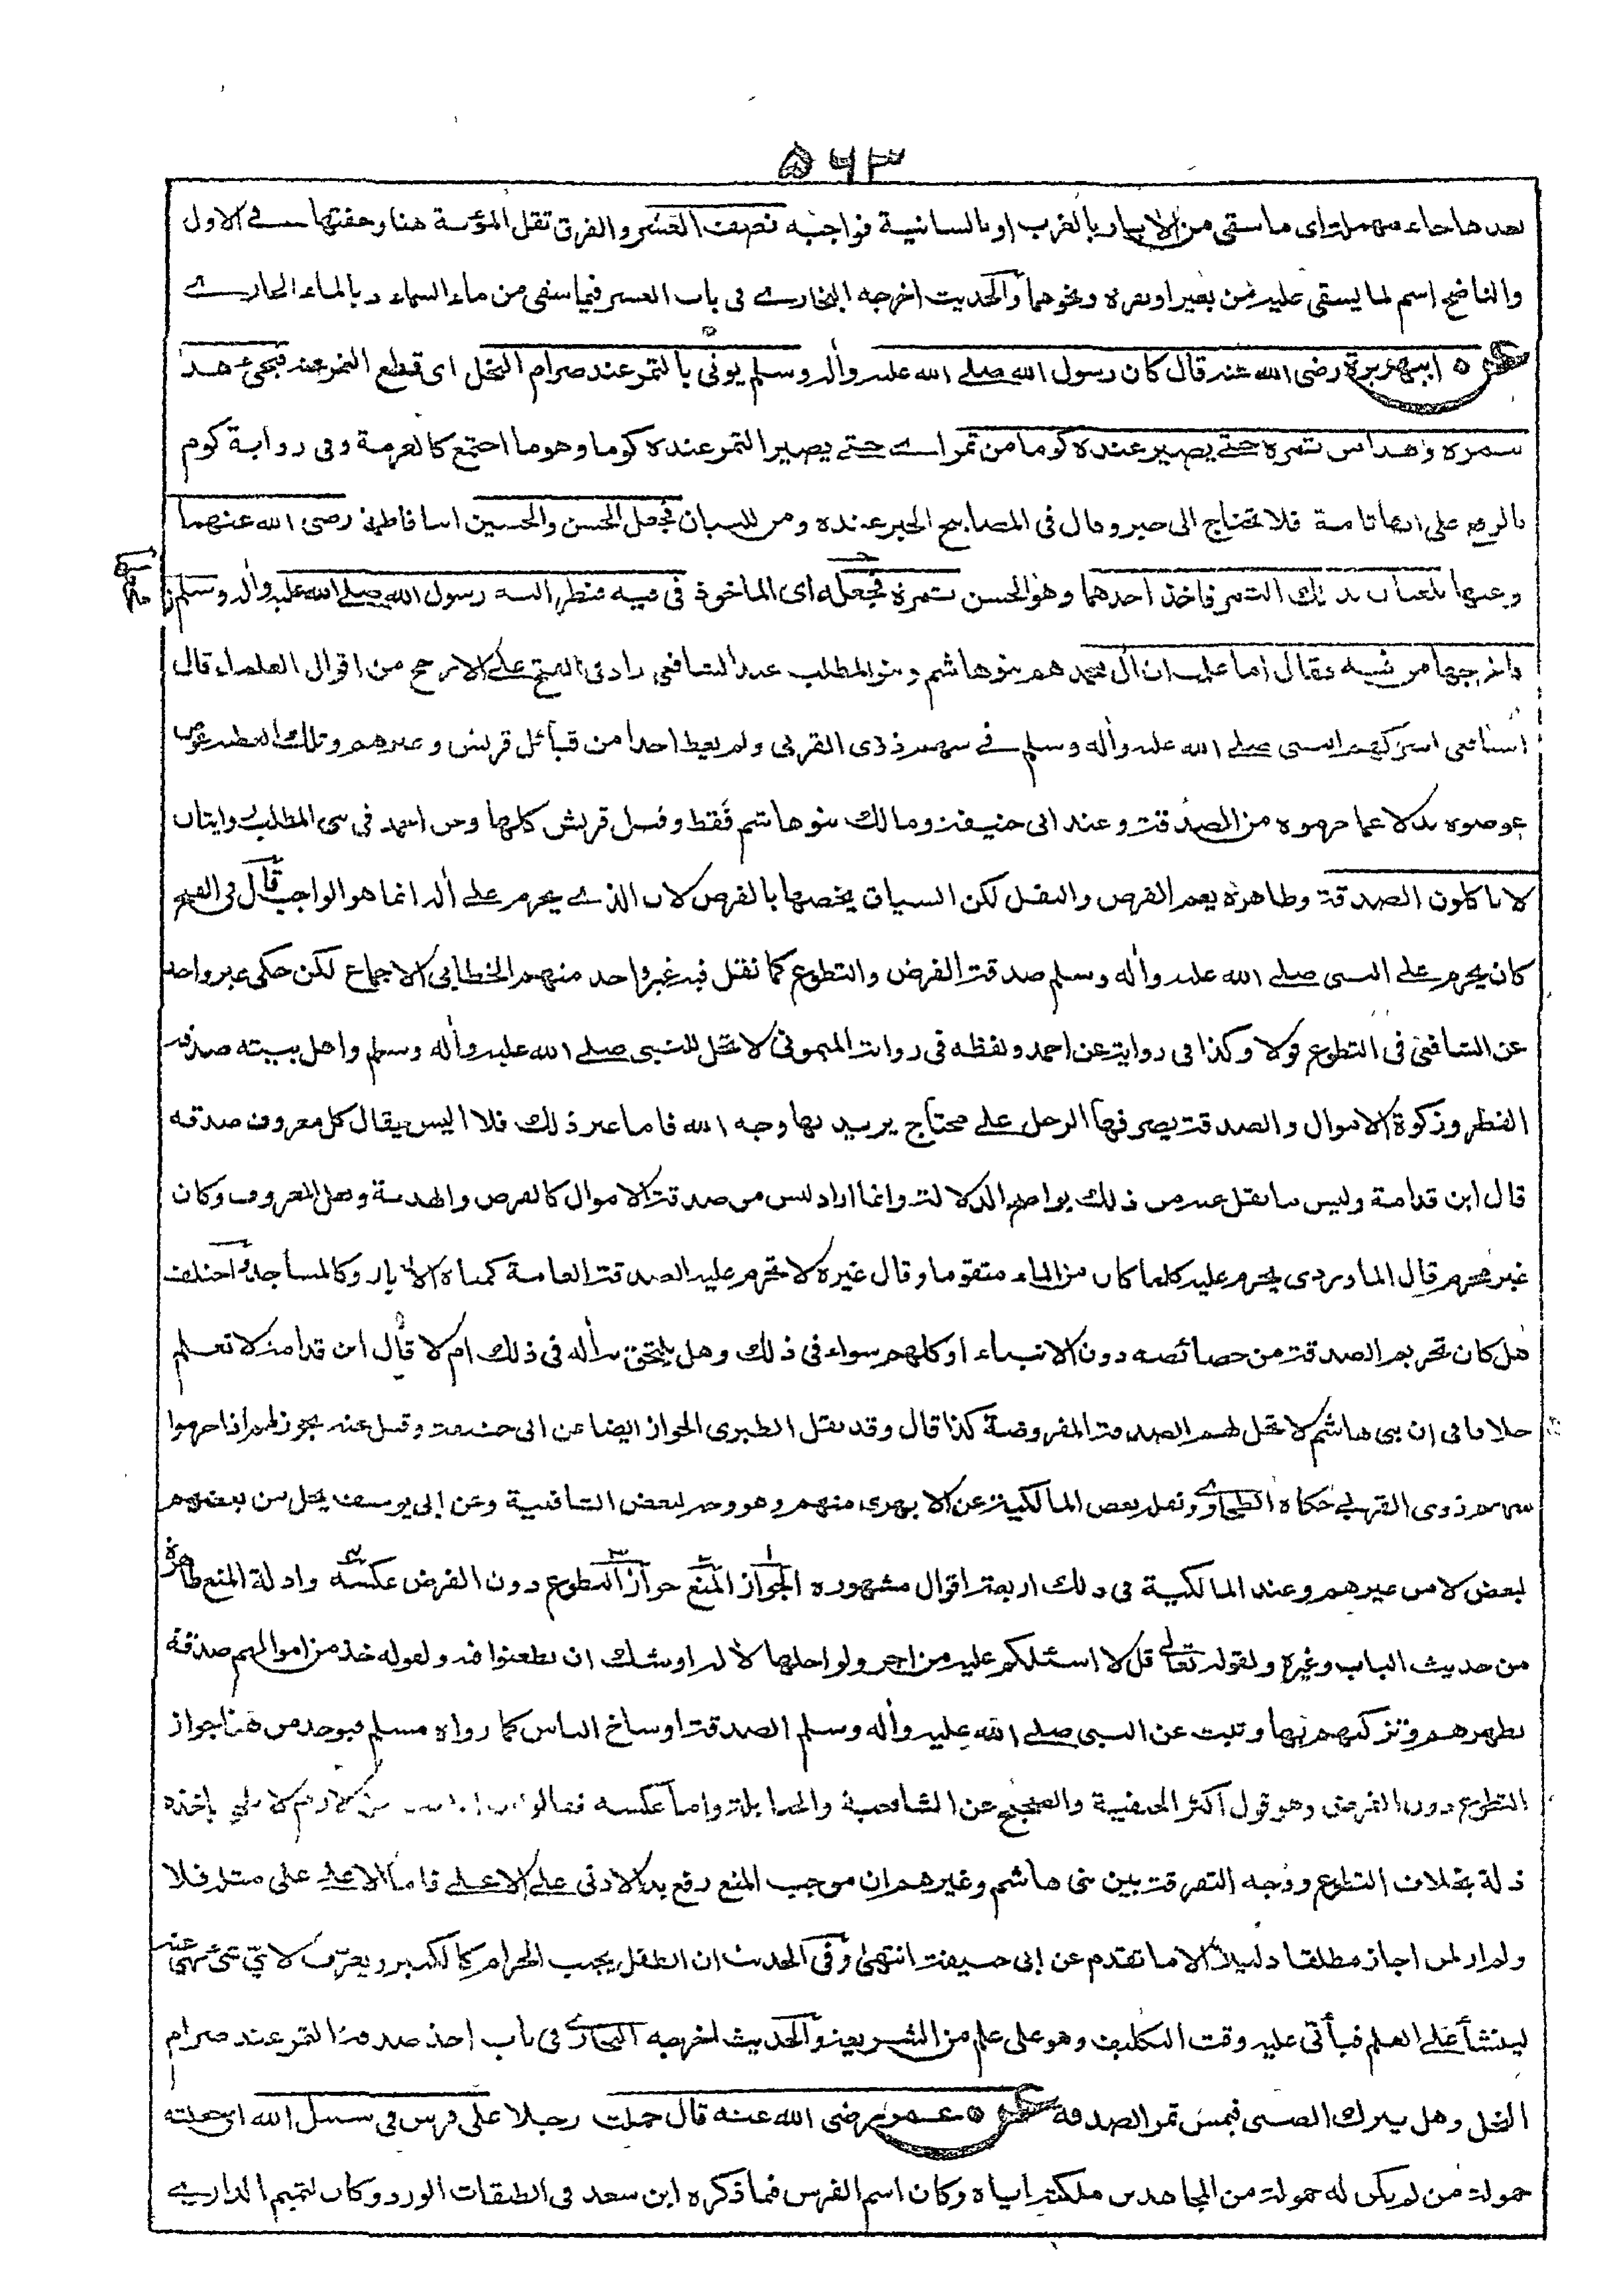 ۵۶۳
بعدها حاء مهملة اى ما سقى من الابار بالغرب او بالسانية فواجبه نصف العشر والفرق ثقل المؤنة هنا وخفتها فى الاول
والناضح اسم لما يسقى عليه من بعير او بقرة ونحوهما والحديث اخرجه البخارے فى باب العشر فيما سقى من ماء السماء وبالماء الجارے
عن ابى هريرة رضى الله عنه قال كان رسول الله صلے الله عليه وأله وسلم يؤتى بالتمر عند صرام النخل اى قطع التمر عنه فيجئ هذا
بتمره وهذا من تمره حتے يصير عنده كوما من تمر اے حتے يصير التمر عنده كوما وهو ما اجتمع كالعرمة وفى رواية كوم
بالرفع على انها تامة فلا تحتاج الى خبر وقال فى المصابيح الخبر عنده ومن للبيان فجعل الحسن والحسين ابنا فاطمة رضى الله عنهما
وعنها يلعبان بذلك التمر فاخذ احدهما وهو الحسن تمرة فجعله اى الماخوذ فى فيه فنظر اليه رسول الله صلے الله عليه وأله وسلم
فاخرجها من فيه فقال اما علمت ان أل محمد هم بنو هاشم وبنو المطلب عند الشافعى زاد فى الفتح علے الارجح من اقوال العلماء قال
الشافعى اشركهم النبى صلے الله عليه وأله وسلم فے سهم ذوى القربى ولم يعط احدا من قبائل قريش وغيرهم وتلك العطية عوض
عوضوه بدلا عما حرموه من الصدقة وعند ابى حنيفة ومالك بنو هاشم فقط وقيل قريش كلها وعن احمد فى بنى المطلب روايتان
لا ياكلون الصدقة وظاهره يعم الفرض والنفل لكن السياق يخصها بالفرض لان الذے يحرم علے أله انما هو الواجب قال فى الفتح
كان يحرم علے النبى صلے الله عليه وأله وسلم صدقة الفرض والتطوع كما نقل فيه غير واحد منهم الخطابى الاجماع لكن حكى غير واحد
عن الشافعى فى التطوع قولا وكذا فى رواية عن احمد ولفظه فى رواية الميمونى لا تحل للنبى صلے الله عليه وأله وسلم واهل بيته صدقة
الفطر وزكوة الاموال والصدقة يصرفها الرجل علے محتاج يريد بها وجه الله فاما غير ذلك فلا اليس يقال كل معروف صدقة
قال ابن قدامة وليس ما نقل عنه من ذلك بواضح الدلالة وانما اراد ليس من صدقة الاموال كالقرض والهدية وفعل المعروف وكان
غير محرم قال الماوردى يحرم عليه كلما كان من الماء متقوما وقال غيره لا تحرم عليه الصدقة العامة كمياه الابار وكالمساجد واختلف
هل كان تحريم الصدقة من خصائصه دون الانبياء او كلهم سواء فى ذلك وهل يلتحق به أله فى ذلك ام لا قال ابن قدامة لا نعلم
خلافا فى ان بنى هاشم لا تحل لهم الصدقة المفروضة كذا قال وقد نقل الطبرى الجواز ايضا عن ابى حنيفة وقيل عنه يجوز لهم اذا حرموا
سهم ذوى القربے حكاه الطحاوے ونقل بعض المالكية عن الابهرى منهم وهو وجه لبعض الشافعية وعن ابى يوسف يحل من بعضهم
لبعض لا من غيرهم وعند المالكية فى ذلك اربعة اقوال مشهورة الجواز المنع جواز التطوع دون الفرض عكسه وادلة المنع ظاهرة
من حديث الباب وغيره ولقوله تعالى قل لا اسئلكم عليه من اجر ولو احلها لأله اوشك ان يطعنوا فيه ولقوله خذ من اموالهم صدقة
تطهرهم وتزكيهم بها وثبت عن النبى صلے الله عليه وأله وسلم الصدقة اوساخ الناس كما رواه مسلم فيوخذ من هذا جواز
التطوع دون الفرض وهو قول اكثر الحنفية والصحيح عن الشافعية والحنابلة واما عكسه فقالوا ان الواجب حق لازم لا يلحق باخذه
ذلة بخلاف التطوع ووجه التفرقة بين بنى هاشم وغيرهم ان موجب المنع رفع يد الادنى علے الاعلے فاما الاعلے على مثله فلا
ولم ار لمن اجاز مطلقا دليلا الا ما تقدم عن ابى حنيفة انتهى وفى الحديث ان الطفل يجنب الحرام كالكبير ويعرف لاى شئ نهى عنه
لينشأ علے العلم فيأتى عليه وقت التكليف وهو على علم من الشريعة والحديث اخرجه البخارے فى باب اخذ صدقة التمر عند صرام
النخل وهل يترك الصبى فيمس تمر الصدقة عن عمر رضى الله عنه قال حملت رجلا على فرس فى سبيل الله اى جعلته
حمولة من لم يكن له حمولة من المجاهدين ملكته اياه وكان اسم الفرس فما ذكره ابن سعد فى الطبقات الورد وكان لتميم الدارے